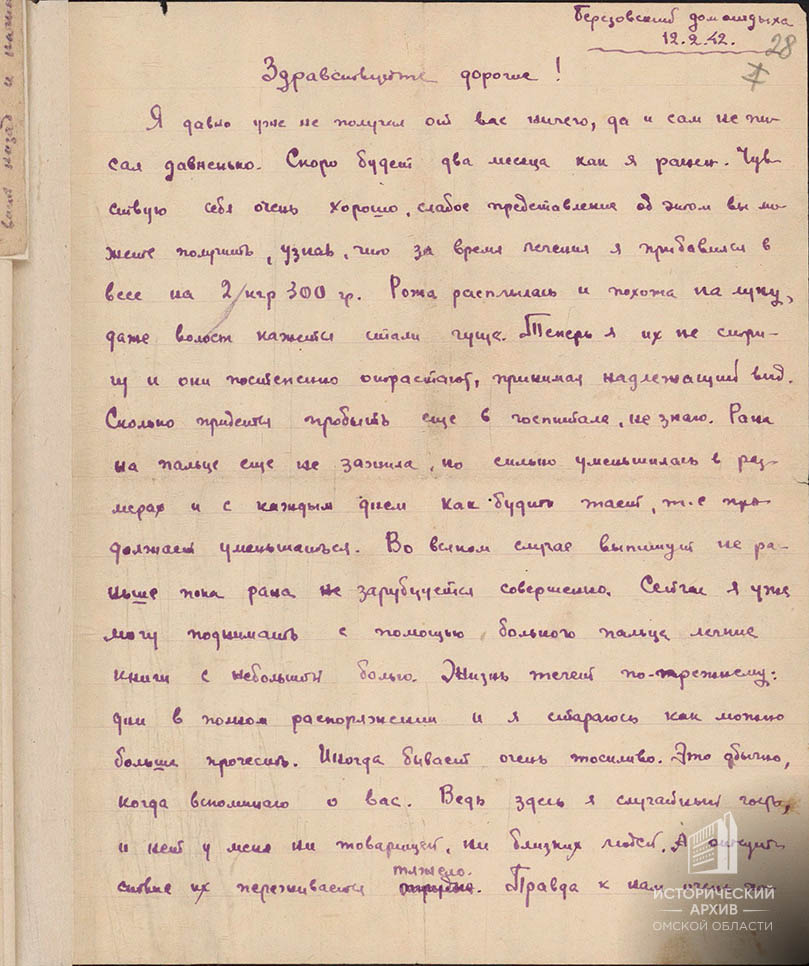 Березовский дом отдыха
12.2.42.
28
I
Здравствуйте дорогие!
Я давно уже не получал от вас ничего, да и сам не пи-
сал давненько. Скоро будет два месяца как я ранен. Чув-
ствую себя очень хорошо, слабое представление об этом вы мо-
жете получить, узнав, что за время лечения я прибавился в
весе на 2 кгр 300 гр. Рожа расплылась и похожа на луну,
даже волосы кажется стали гуще. Теперь я их не стри-
гу и они постепенно отрастают, принимая надлежащий вид.
Сколько придется пробыть еще в госпитале, не знаю. Рана
на пальце еще не зажила, но сильно уменьшилась в раз-
мерах и с каждым днем как будто тает, т.е про-
должает уменьшаться. Во всяком случае выпишут не ра-
ньше пока рана не зарубцуется совершенно. Сейчас я уже
могу поднимать с помощью больного пальца легкие
книги с небольшой болью. Жизнь течет по-прежнему:
дни в полном распоряжении и я стараюсь как можно
больше прочесть. Иногда бывает очень тоскливо. Это обычно,
когда вспоминаю о вас. Ведь здесь я случайный гость,
и нет у меня ни товарищей, ни близких людей. А отсут-
ствие их переживается тяжело. Правда к нам очень
ваш назад и
ИСТОРИЧЕСКИЙ
АРХИВ
ОМСКОЙ ОБЛАСТИ